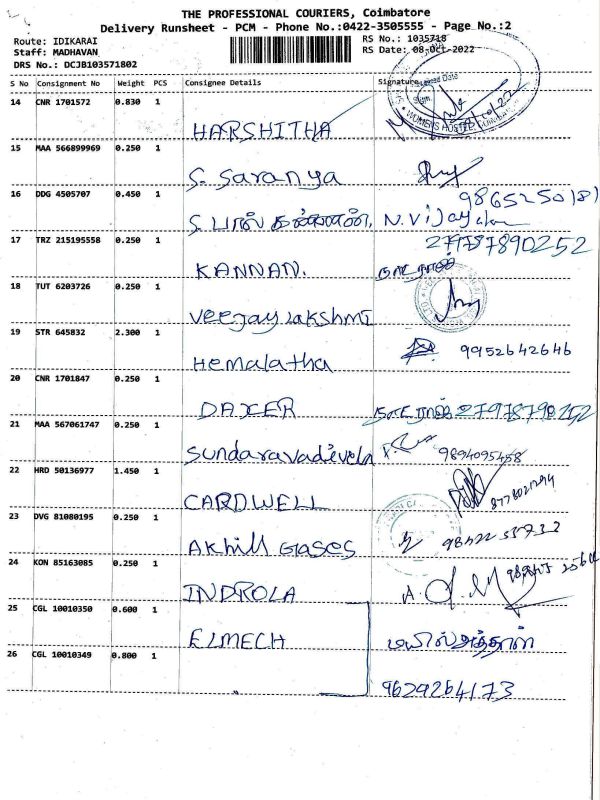 THE PROFESSIONAL COURIERS, Coimbatore
Delivery Runsheet - PCM - Phone No.:0422-3505555 - Page No.:2
Route: IDIKARAI RS No.: 1035718
Staff: MADHAVAN RS Date: 08-Oct-2022
DRS No.: DCJB103571802
S No Consignment No Weight PCS Consignee Details Signature
14 CNR 1701572 0.830 1
HARSHITHA
15 MAA 566899969 0.250 1
S. Saranya
16 DDG 4505707 0.450 1
9865250181
S. பால் N. Vijaya
17 TRZ 215195558 0.250 1
KANNAN.
18 TUT 6203726 0.250 1
Veejaylakshmi
19 STR 645832 2.300 1
Hemalatha 9952642646
20 CNR 1701847 0.250 1
DAXER
21 MAA 567061747 0.250 1
Sundaravadivela 9894095458
22 HRD 50136977 1.450 1
CARDWELL
23 DVG 81080195 0.250 1
Akhill Gases
24 KON 85163085 0.250 1
INDROLA
25 CGL 10010350 0.600 1
ELMECH
26 CGL 10010349 0.800 1
9629264173